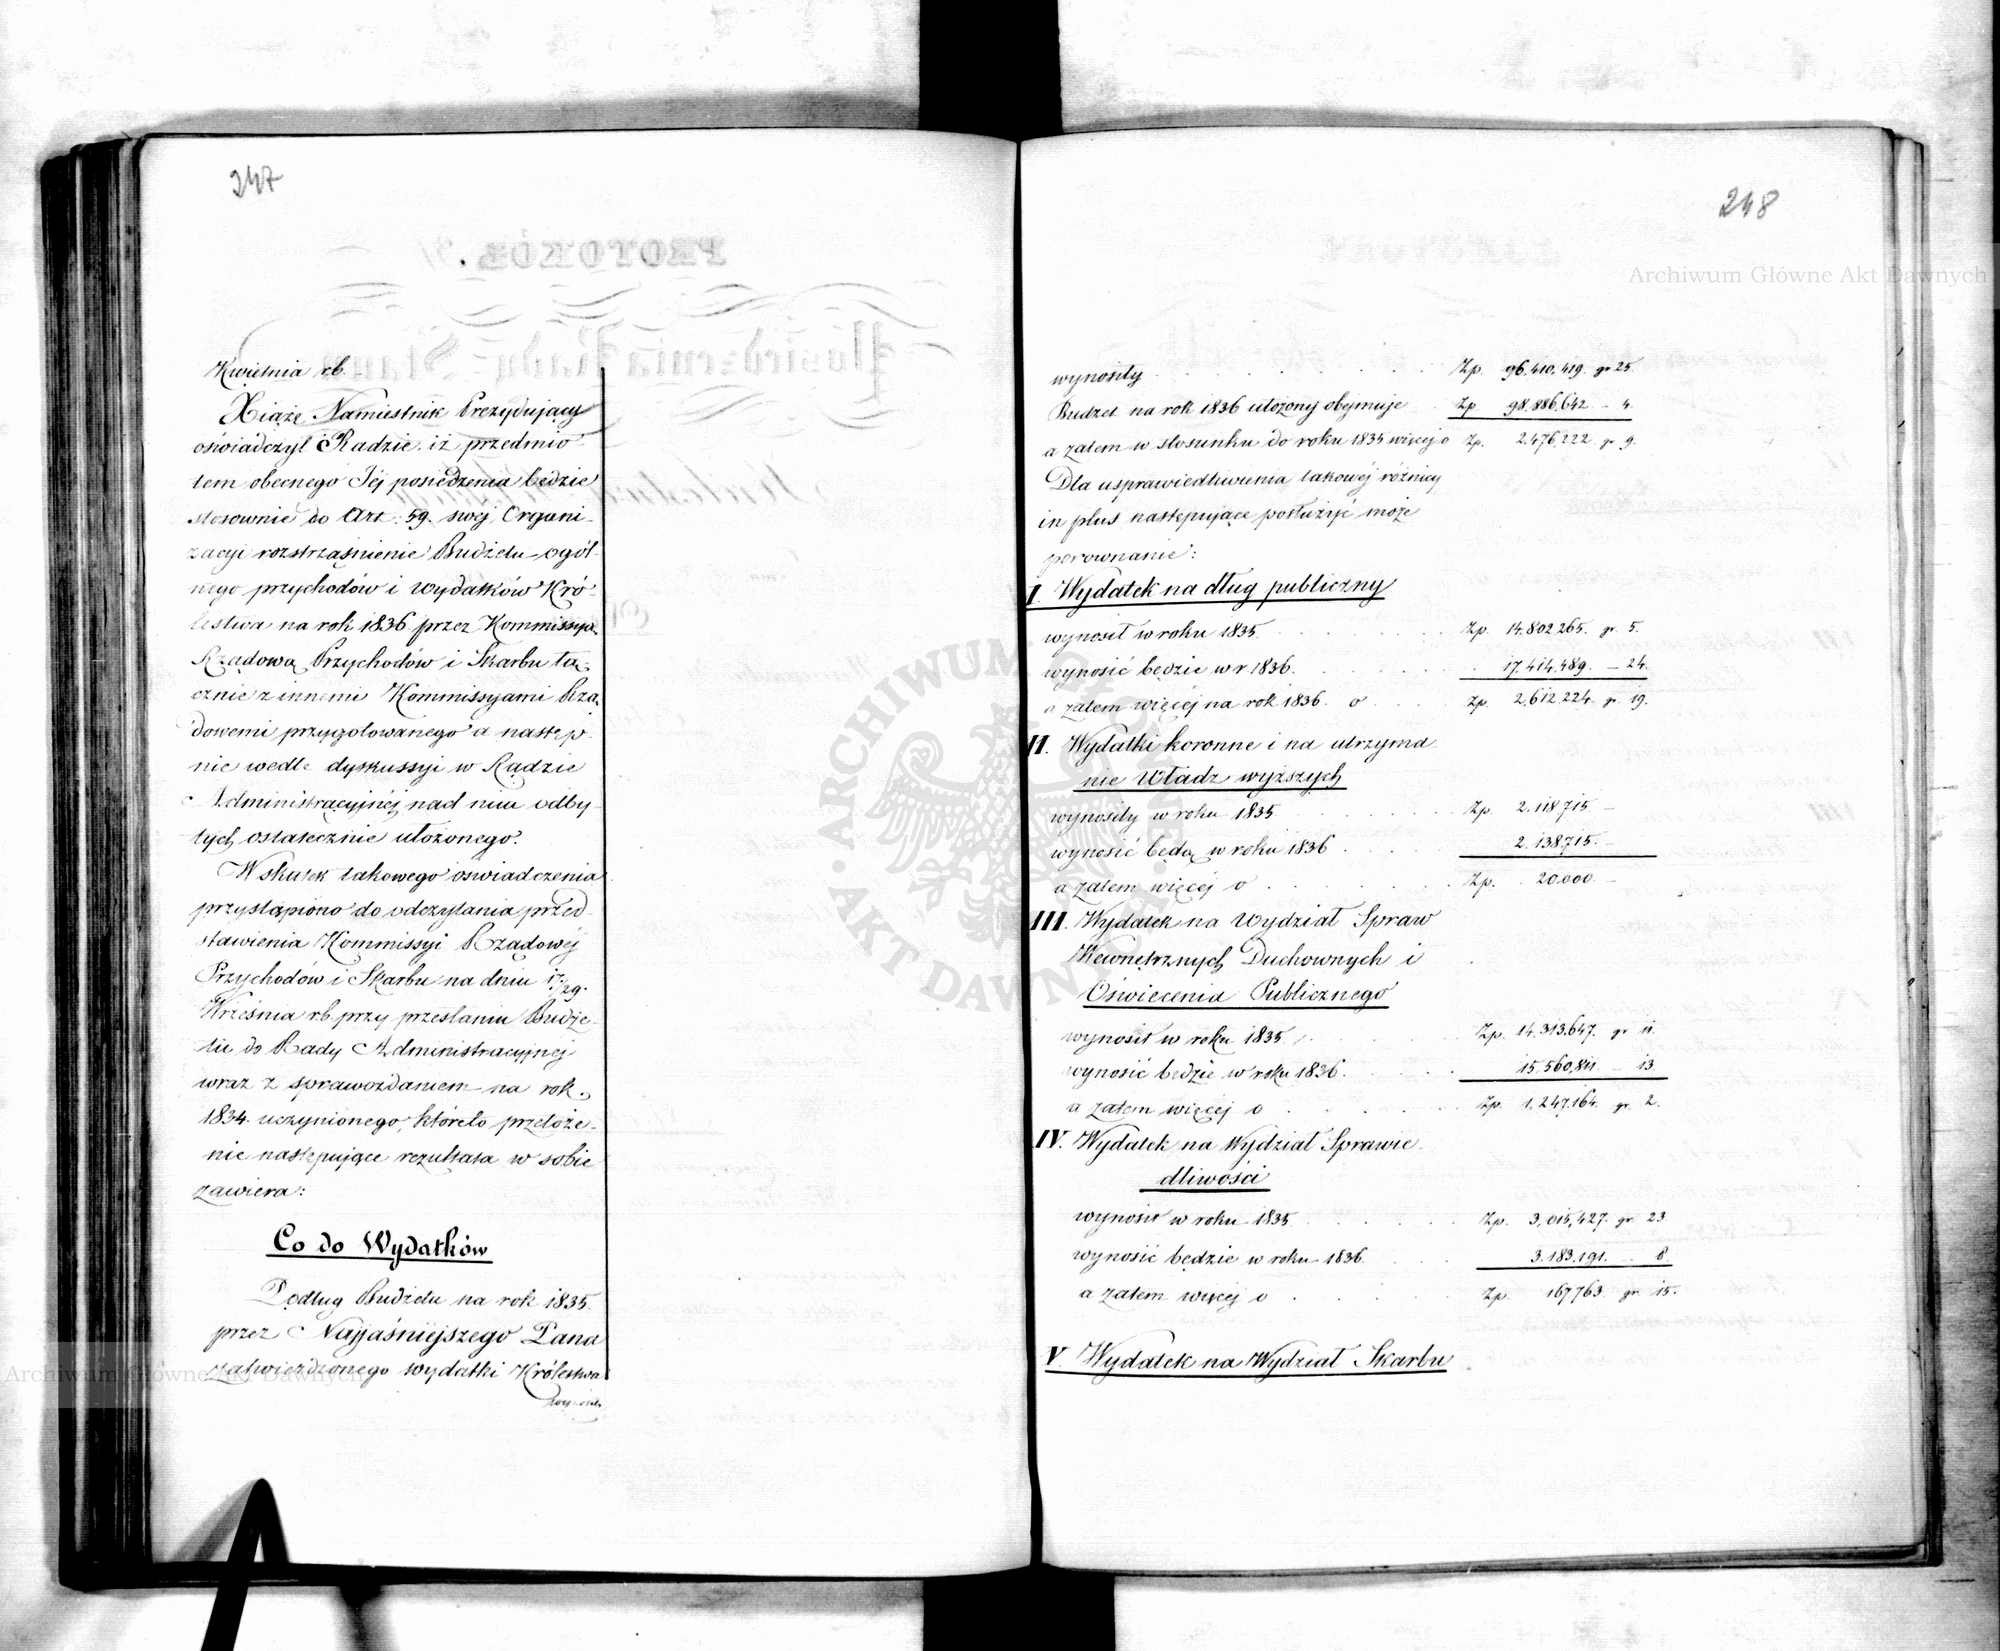 247
Kwietnia r.b.
Xiążę Namiestnik Prezydujący
oświadczył Radzie, iż przedmio-
tem obecnego Jéj posiedzenia będzie
stosownie do Art: 59. swéj Organi-
zacyi roztrząśnienie Budżetu ogól-
nego przychodów i wydatków Kró-
lestwa na rok 1836 przez Kommissyą
Rządową Przychodów i Skarbu łą-
cznie z innemi Kommissyami Rzą-
dowemi przygotowanego a następ-
nie wedle dyskussyi w Radzie
Administracyjnéj nad nim odby-
tych ostatecznie ułożonego.
Wskutek takowego oświadczenia
przystąpiono do odczytania przed-
stawienia Kommissyi Rządowéj
Przychodów i Skarbu na dniu 17/29.
Września r.b. przy przesłaniu Budże-
tu do Rady Administracyjnej
wraz z sprawozdaniem na rok
1834. uczynionego, któreto przełoże-
nie następujące rezultata w sobie
zawiera:
Co do Wydatków
Podług Budżetu na rok 1835.
przez Najjaśniejszego Pana
zatwierdzonego wydatki Królestwa
wynosiły
248
wynosiły Zp. 96.410.419. gr 25.
Budżet na rok 1836 ułożony obejmuje Zp. 98.886.642 - 4.
a zatem w stosunku do roku 1835 więcej o Zp. 2.476.222 gr 9.
Dla usprawiedliwienia takowéj różnicy
in plus następujące posłużyć może
porównanie:
I. Wydatek na dług publiczny
wynosił w roku 1835. Zp. 14.802.265. gr. 5.
wynosić będzie w r 1836. 17.414.489. - 24.
a zatem więcéj na rok 1836. o Zp. 2.612.224. gr. 19.
II. Wydatki koronne i na utrzyma-
nie Władz wyższych
wynosiły w roku 1835 Zp. 2.118.715 -
wynosić będą w roku 1836 2.138.715. -
a zatem więcéj o Zp. 20.000. -
III. Wydatek na Wydział Spraw
Wewnętrznych Duchownych i
Oświecenia Publicznego
wynosił w roku 1835. Zp. 14.313.647. gr 11.
wynosić będzie w roku 1836. 15.560.811. - 13.
a zatem więcéj o Zp. 1.247.164. gr. 2.
IV. Wydatek na Wydział Sprawie-
dliwości
wynosił w roku 1835. Zp. 3.015.427. gr 23.
wynosić będzie w roku 1836. 3.183.191. - 8
a zatem więcéj o Zp. 167.763. gr 15.
V. Wydatek na Wydział Skarbu
Archiwum Główne Akt Dawnych
ARCHIWUM GŁÓWNE AKT DAWNYCH
Archiwum Główne Akt Dawnych